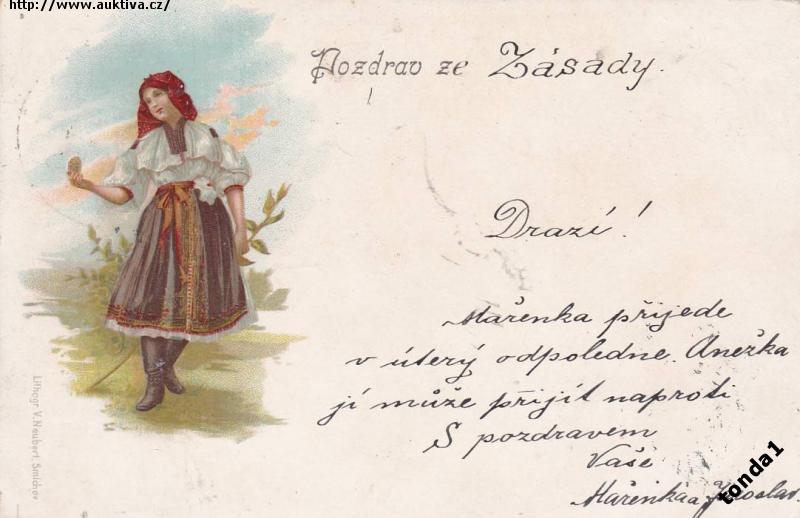 http://www.auktiva.cz/
Pozdrav ze Zásady.
Drazí!
Mařenka přijede
v úterý odpoledne. Anežka
jí může přijít naproti
S pozdravem
Vaše
Mařenka a Jaroslav.
Lithogr. V. Neubert, Smíchov
tonda1